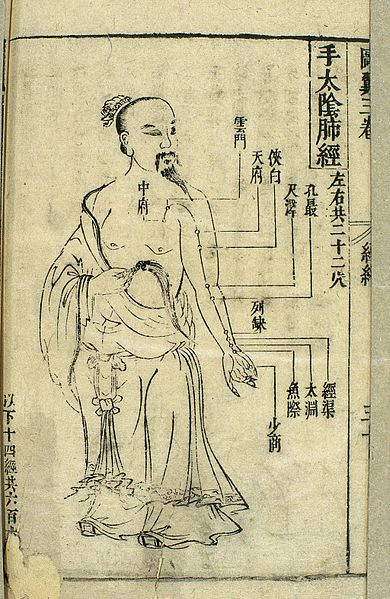 圖翼三卷
經絡
手太陰肺經
左右共二十二穴
孔最
尺澤
俠白
天府
雲門
中府
列缺
經渠
太淵
魚際
少商
以下十四經共六百